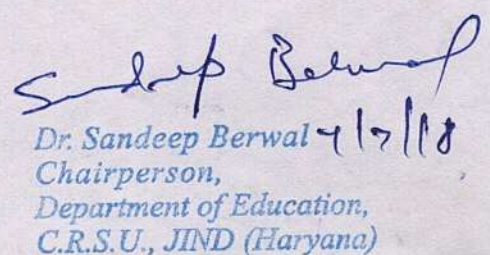 Sandeep Berwal
Dr. Sandeep Berwal 7/7/18
Chairperson,
Department of Education,
C.R.S.U., JIND (Haryana)